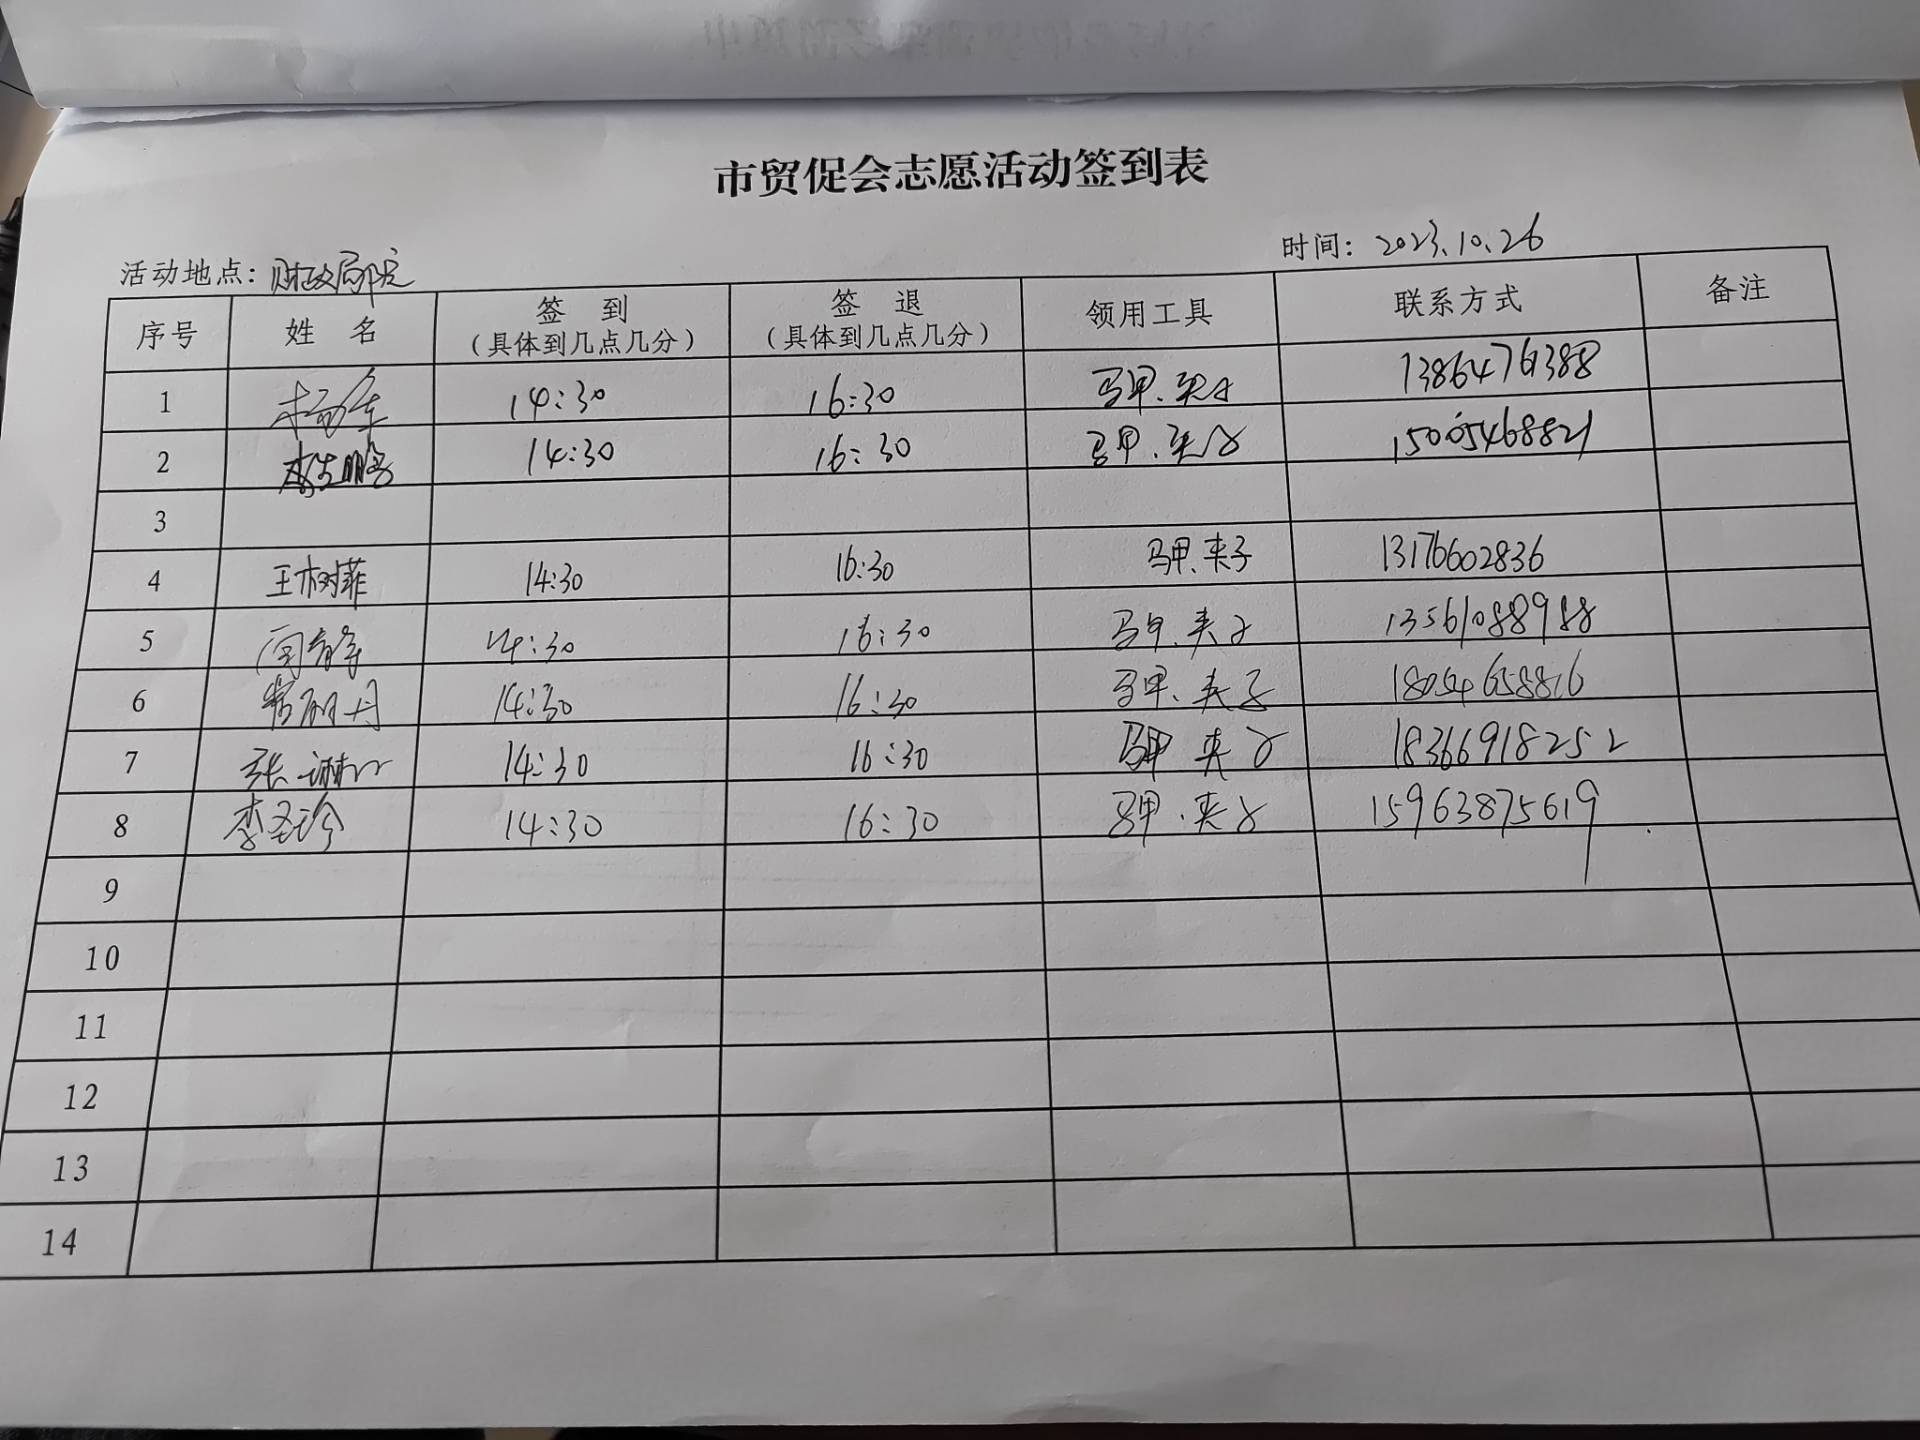 市贸促会志愿活动签到表
活动地点：财政局院 时间：2023.10.26
序号 姓 名 签 到（具体到几点几分） 签 退（具体到几点几分） 领用工具 联系方式 备注
1 14:30 16:30 马甲、夹子 13864761388
2 14:30 16:30 马甲、夹子 15005468821
3
4 王树菲 14:30 16:30 马甲、夹子 13176602836
5 14:30 16:30 马甲、夹子 13561088988
6 14:30 16:30 马甲、夹子 18054658816
7 张 14:30 16:30 马甲 夹子 18366918252
8 李圣珍 14:30 16:30 马甲、夹子 15963875619
9
10
11
12
13
14